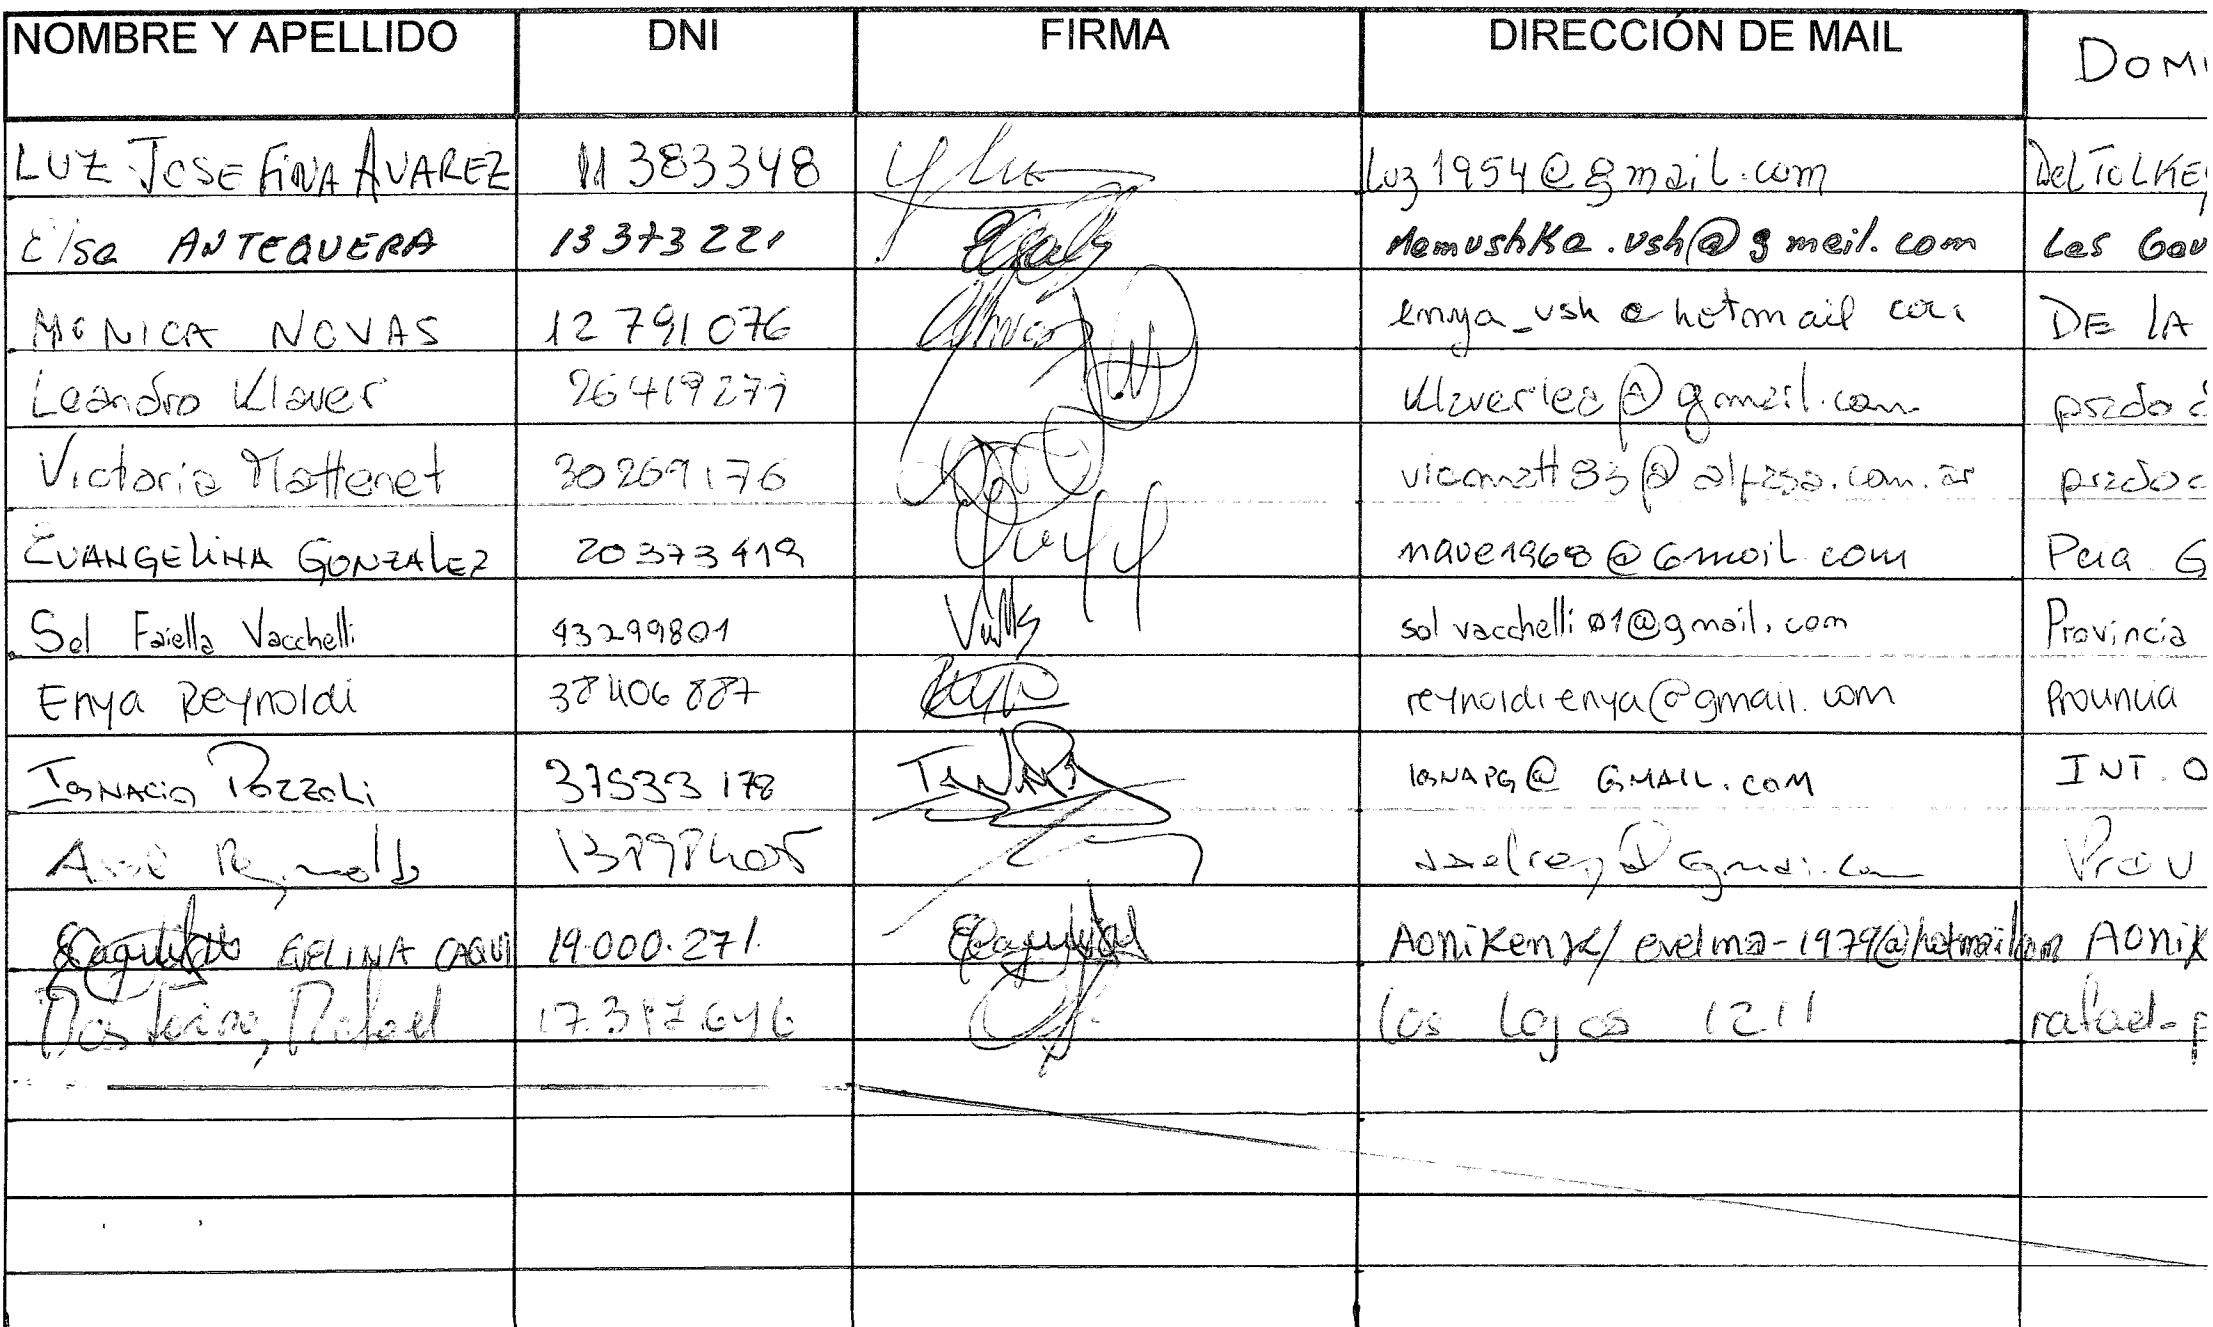 NOMBRE Y APELLIDO DNI FIRMA DIRECCIÓN DE MAIL DOMI
LUZ JOSEFINA ALVAREZ 11383348 luz1954@gmail.com Del TOLKE
Elsa ANTEQUERA 13373221 Memushka.ush@gmail.com Las Gav
MONICA NOVAS 12791076 enya_ush@hotmail com DE LA
Leandro Klaver 26419277 klaverlea@gmail.com prado
Victoria Mattenet 30269176 vicomatt83@alfasa.com.ar prado
EVANGELINA GONZALEZ 20373419 nave1968@Gmail.com Pcia G
Sol Faiella Vacchelli 43299801 solvacchelli01@gmail.com Provincia
Enya Reynoldi 38406887 reynoldienya@gmail.com Provincia
IGNACIO POZZOLI 37533178 IGNAPG@GMAIL.COM INT. O
13898405 Prov
EVELINA CAQUI 19.000.271. Aonikenk/ evelina-1979@hotmail.com AONIK
Rafael los Lojas 1211 rafael-p